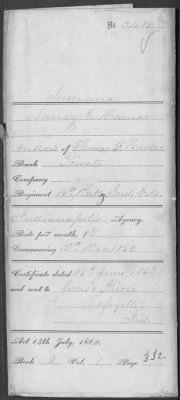 No.
Indiana
Nancy E.
Widow of Thomas F.
Rank Private
Company
Regiment 16th Batty Ind. Vols.
Indianapolis Agency.
Rate per month, $8
Commencing Dec 1862
Certificate dated 26th June 1863
and sent to
Lafayette
Ind
Act 14th July, 1862.
Book A Vol. 1 Page 332